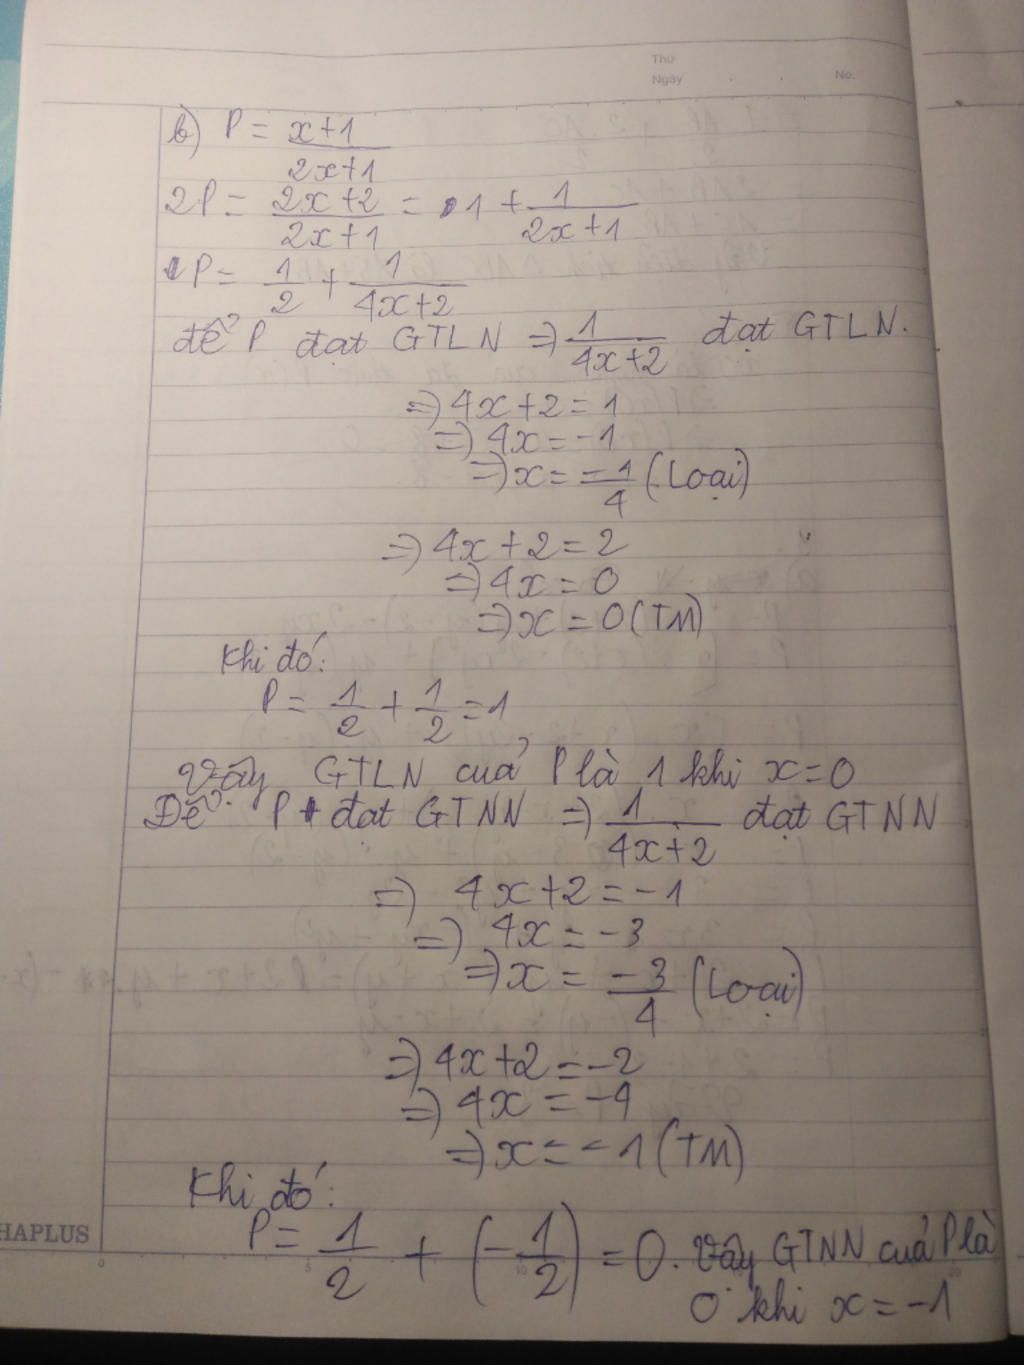 Thứ
Ngày . . No.
b) P = x+1 / 2x+1
2P = 2x+2 / 2x+1 = 1 + 1 / 2x+1
P = 1/2 + 1 / 4x+2
để P đạt GTLN => 1 / 4x+2 đạt GTLN.
=> 4x+2 = 1
=> 4x = -1
=> x = -1/4 (Loại)
=> 4x+2 = 2
=> 4x = 0
=> x = 0 (TM)
Khi đó:
P = 1/2 + 1/2 = 1
Vậy GTLN của P là 1 khi x = 0
Để P đạt GTNN => 1 / 4x+2 đạt GTNN
=> 4x+2 = -1
=> 4x = -3
=> x = -3/4 (Loại)
=> 4x+2 = -2
=> 4x = -4
=> x = -1 (TM)
Khi đó:
P = 1/2 + (-1/2) = 0. Vậy GTNN của P là
0 khi x = -1
HAPLUS
0 5 10 20